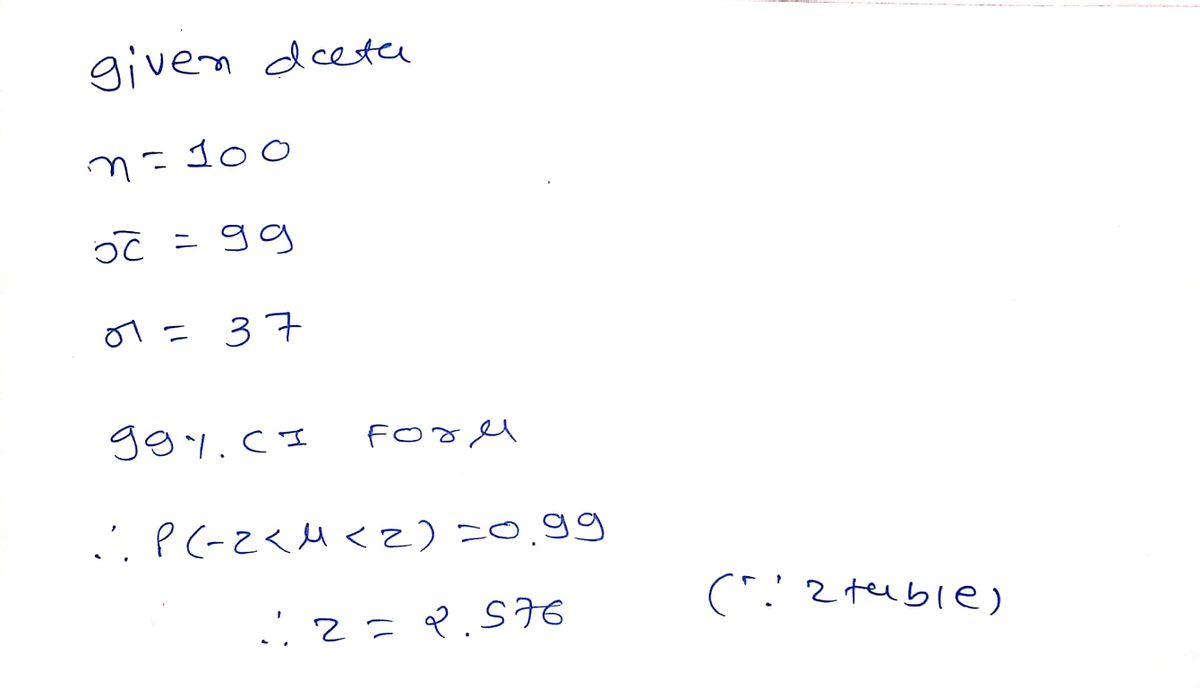 given data
n = 100
x̄ = 99
σ = 37
99%. CI FOR μ
∴ P(-z<μ<z) = 0.99
∴ z = 2.576 (∵ z table)